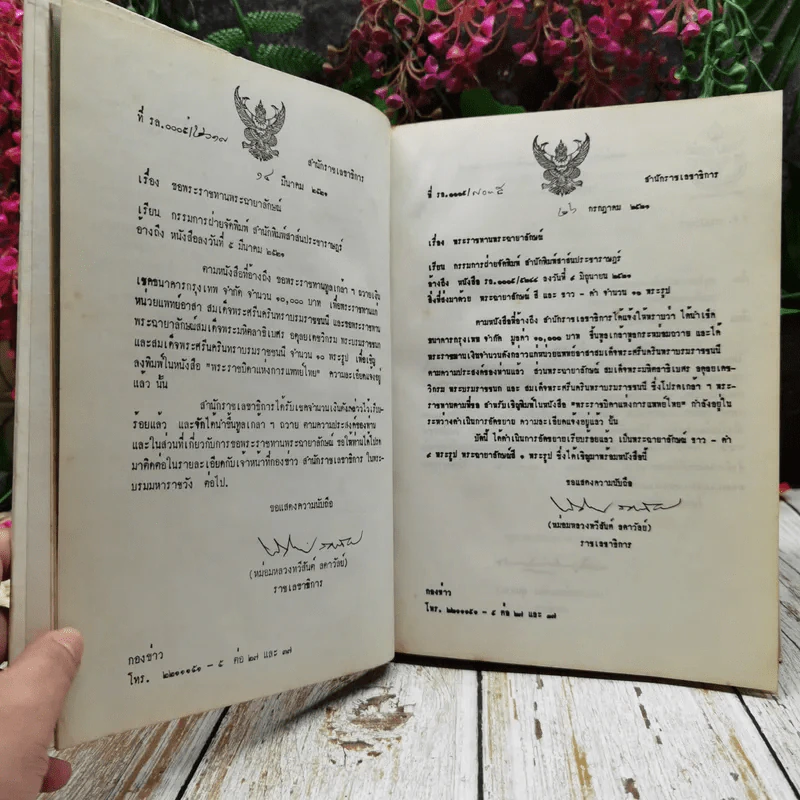 ที่ รล.๐๐๐๕/
สำนักราชเลขาธิการ
๑๔ มีนาคม ๒๕๒๑
เรื่อง ขอพระราชทานพระฉายาลักษณ์
เรียน กรรมการฝ่ายจัดพิมพ์ สำนักพิมพ์สาส์นประชาราษฎร์
อ้างถึง หนังสือลงวันที่ ๕ มีนาคม ๒๕๒๑
ตามหนังสือที่อ้างถึง ขอพระราชทานทูลเกล้า ฯ ถวายเงิน
เชคธนาคารกรุงเทพ จำกัด จำนวน ๑๐,๐๐๐ บาท เพื่อพระราชทานแก่
หน่วยแพทย์อาสา สมเด็จพระศรีนครินทราบรมราชชนนี และขอพระราชทาน
พระฉายาลักษณ์สมเด็จพระมหิตลาธิเบศร อดุลยเดชวิกรม พระบรมราชชนก
และสมเด็จพระศรีนครินทราบรมราชชนนี จำนวน ๑๐ พระรูป เพื่อเชิญ
ลงพิมพ์ในหนังสือ "พระราชบิดาแห่งการแพทย์ไทย" ความละเอียดแจ้งอยู่
แล้ว นั้น
สำนักราชเลขาธิการได้รับเชคจำนวนเงินดังกล่าวไว้เรียบ
ร้อยแล้ว และจัดได้นำขึ้นทูลเกล้า ฯ ถวาย ตามความประสงค์ของท่าน
และในส่วนที่เกี่ยวกับการขอพระราชทานพระฉายาลักษณ์ ขอให้ท่านได้โปรด
มาติดต่อในรายละเอียดกับเจ้าหน้าที่กองข่าว สำนักราชเลขาธิการ ในพระ-
บรมมหาราชวัง ต่อไป.
ขอแสดงความนับถือ
(หม่อมหลวงทวีสันต์ ลดาวัลย์)
ราชเลขาธิการ
กองข่าว
โทร. ๒๒๑๑๑๕๑ - ๕ ต่อ ๒๗ และ ๓๗
ที่ รล.๐๐๐๕/๗๐๓๕
สำนักราชเลขาธิการ
๒๖ กรกฎาคม ๒๕๒๑
เรื่อง พระราชทานพระฉายาลักษณ์
เรียน กรรมการฝ่ายจัดพิมพ์ สำนักพิมพ์สาส์นประชาราษฎร์
อ้างถึง หนังสือ รล.๐๐๐๕/ ลงวันที่ ๕ มิถุนายน ๒๕๒๑
สิ่งที่ส่งมาด้วย พระฉายาลักษณ์ สี และ ขาว - ดำ จำนวน ๑๐ พระรูป
ตามหนังสือที่อ้างถึง สำนักราชเลขาธิการ ได้แจ้งให้ทราบว่า ได้นำเช็ค
ธนาคารกรุงเทพ จำกัด มูลค่า ๑๐,๐๐๐ บาท ขึ้นทูลเกล้าทูลกระหม่อมถวาย และได้
พระราชทานเงินจำนวนดังกล่าวแก่หน่วยแพทย์อาสาสมเด็จพระศรีนครินทราบรมราชชนนี
ตามความประสงค์ของท่านแล้ว ส่วนพระฉายาลักษณ์ สมเด็จพระมหิตลาธิเบศร อดุลยเดช-
วิกรม พระบรมราชชนก และ สมเด็จพระศรีนครินทราบรมราชชนนี ซึ่งโปรดเกล้า ฯ พระ-
ราชทานตามที่ขอ สำหรับเชิญพิมพ์ในหนังสือ "พระราชบิดาแห่งการแพทย์ไทย" กำลังอยู่ใน
ระหว่างดำเนินการอัดขยาย ความละเอียดแจ้งอยู่แล้ว นั้น
บัดนี้ ได้ดำเนินการอัดขยายเรียบร้อยแล้ว เป็นพระฉายาลักษณ์ ขาว - ดำ
๙ พระรูป พระฉายาลักษณ์สี ๑ พระรูป ซึ่งได้เชิญมาพร้อมหนังสือนี้
ขอแสดงความนับถือ
(หม่อมหลวงทวีสันต์ ลดาวัลย์)
ราชเลขาธิการ
กองข่าว
โทร. ๒๒๑๑๑๕๑ - ๕ ต่อ ๒๗ และ ๓๗